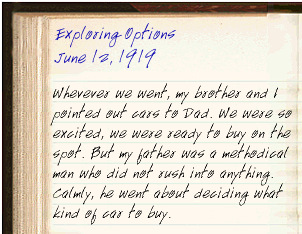 Exploring Options
June 12, 1919
Whevever we went, my brother and I
pointed out cars to Dad. We were so
excited, we were ready to buy on the
spot. But my father was a methodical
man who did not rush into anything.
Calmly, he went about deciding what
kind of car to buy.